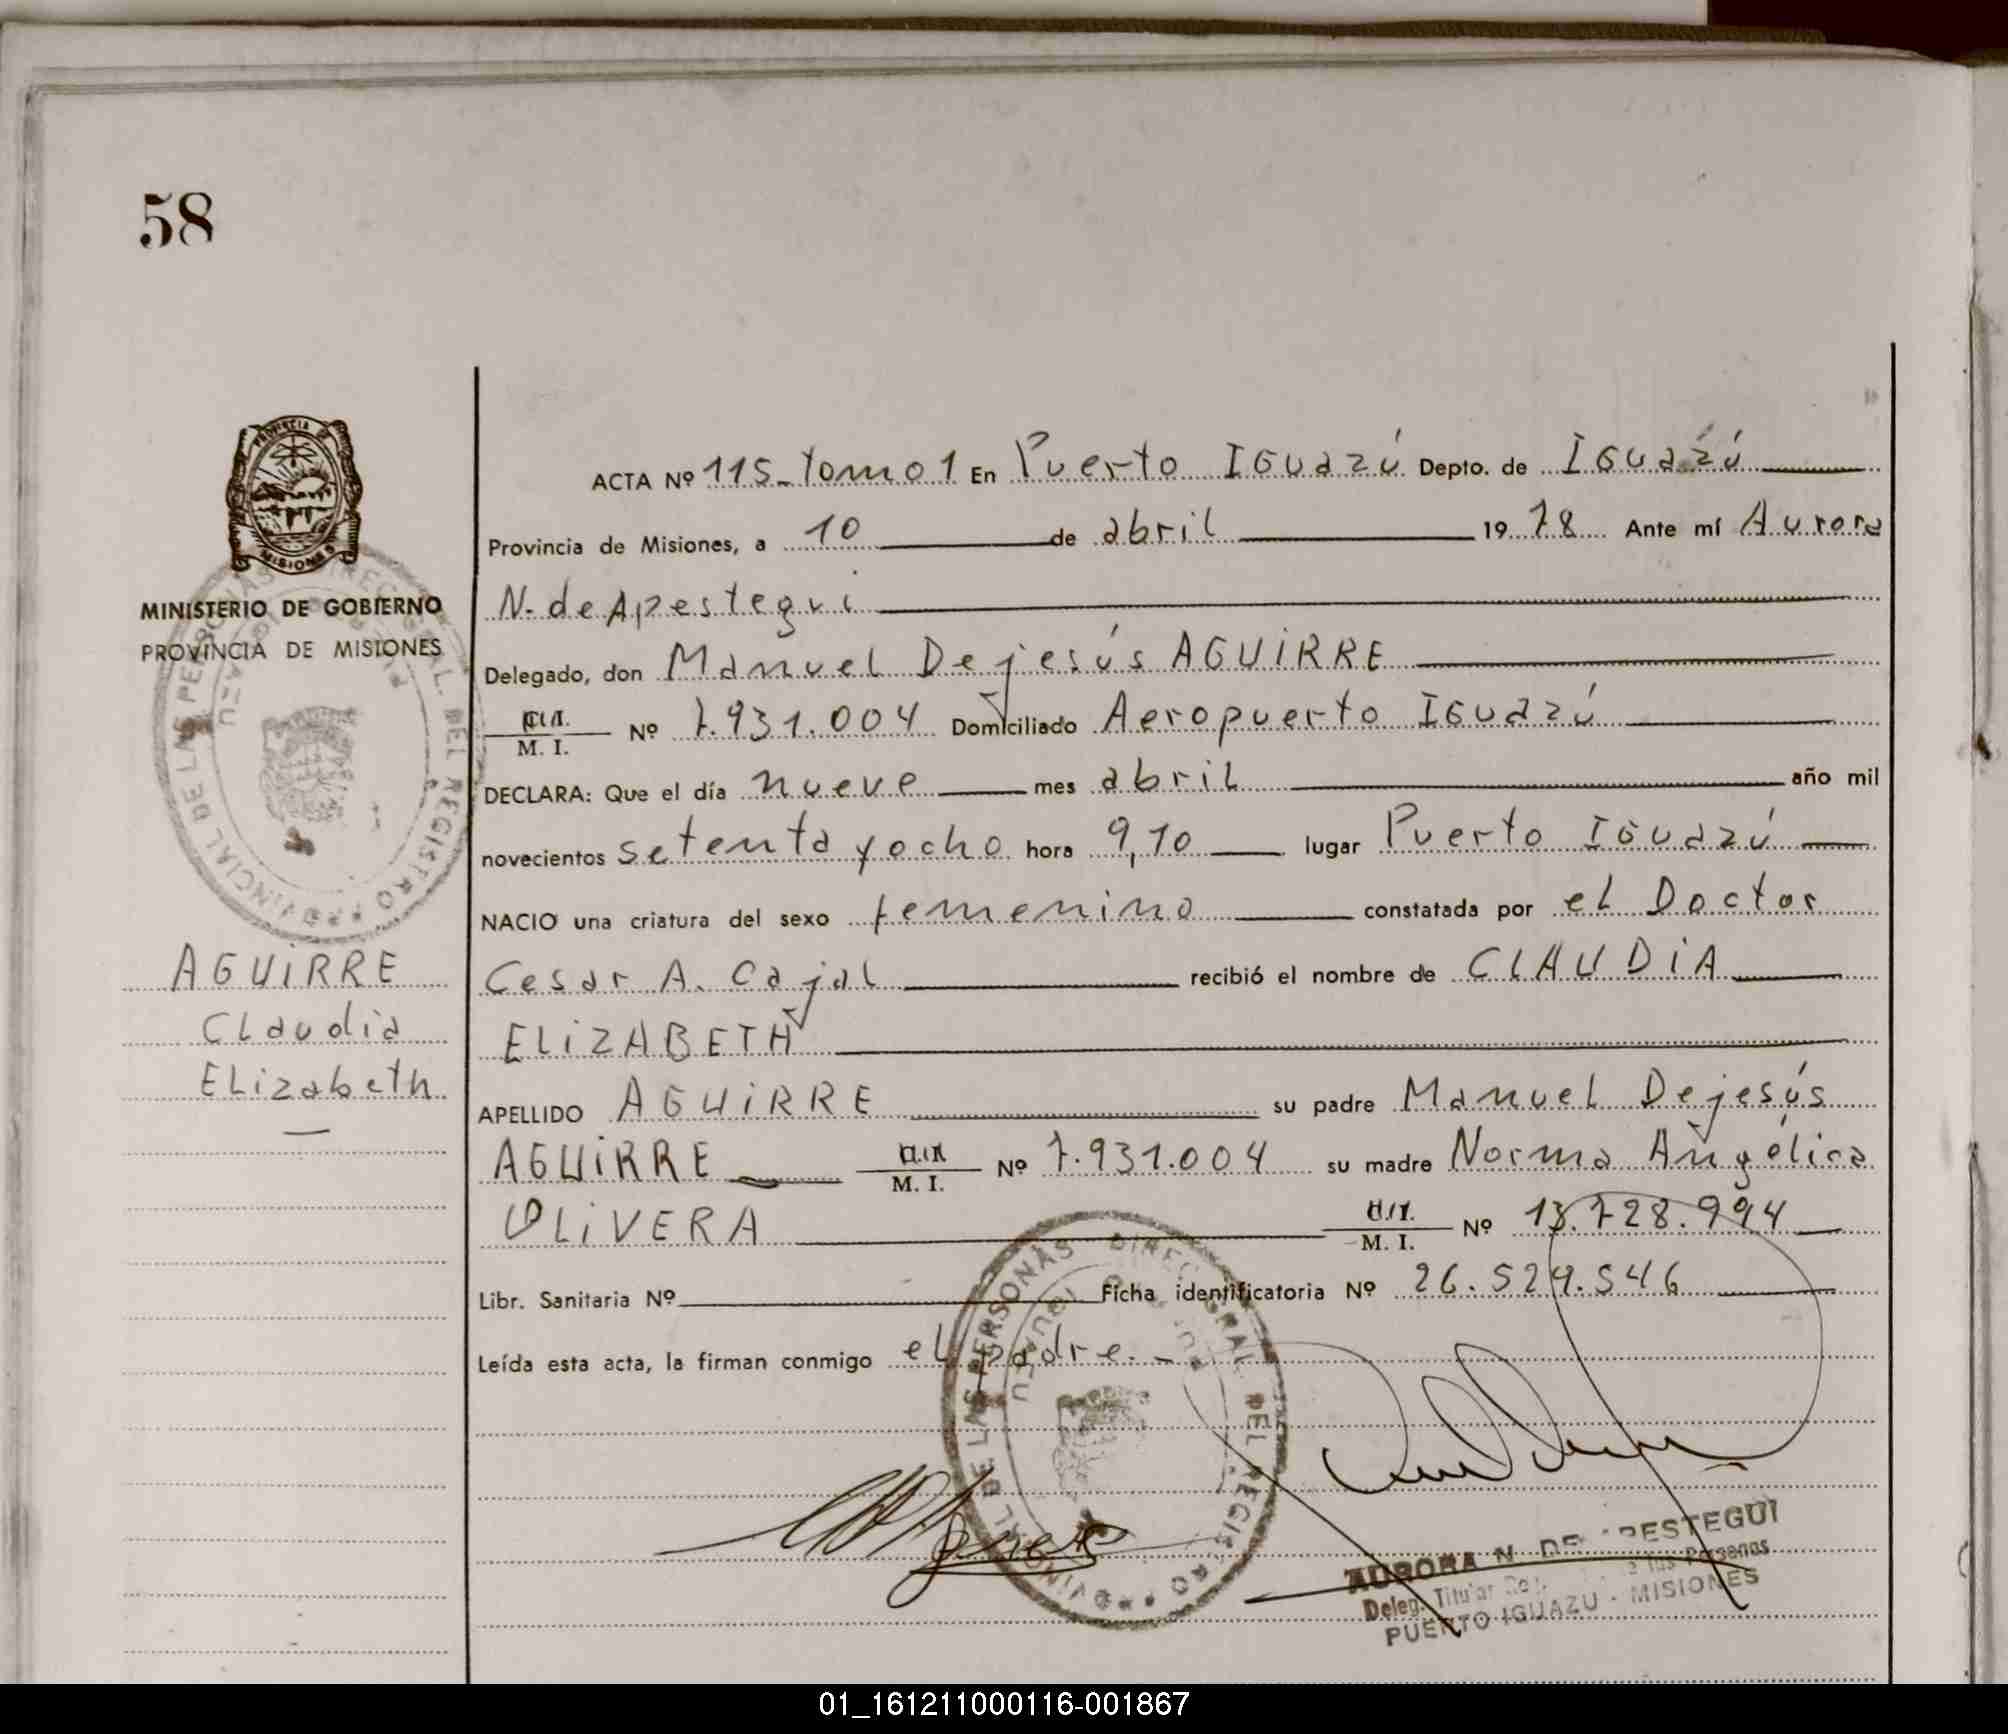 58
PROVINCIA DE
MISIONES
MINISTERIO DE GOBIERNO
PROVINCIA DE MISIONES
AGUIRRE
Claudia
Elizabeth
ACTA Nº 115 - tomo 1 En Puerto Iguazú Depto. de Iguazú
Provincia de Misiones, a 10 de abril 1978 Ante mí Aurora
N. de Apestegui
Delegado, don Manuel Dejesús AGUIRRE
M. I. Nº 7.931.004 Domiciliado Aeropuerto Iguazú
DECLARA: Que el día nueve mes abril año mil
novecientos setenta y ocho hora 9,10 lugar Puerto Iguazú
NACIO una criatura del sexo femenino constatada por el Doctor
Cesar A. Cajal recibió el nombre de CLAUDIA
ELIZABETH
APELLIDO AGUIRRE su padre Manuel Dejesús
AGUIRRE M. I. Nº 7.931.004 su madre Norma Angélica
OLIVERA M. I. Nº 13.728.994
Libr. Sanitaria Nº Ficha identificatoria Nº 26.529.546
Leída esta acta, la firman conmigo el padre.-
DIRECCION GRAL. DEL REGISTRO PROVINCIAL DE LAS PERSONAS
AURORA N. DE APESTEGUI
Deleg. Titular de las Personas
PUERTO IGUAZU - MISIONES
01_161211000116-001867